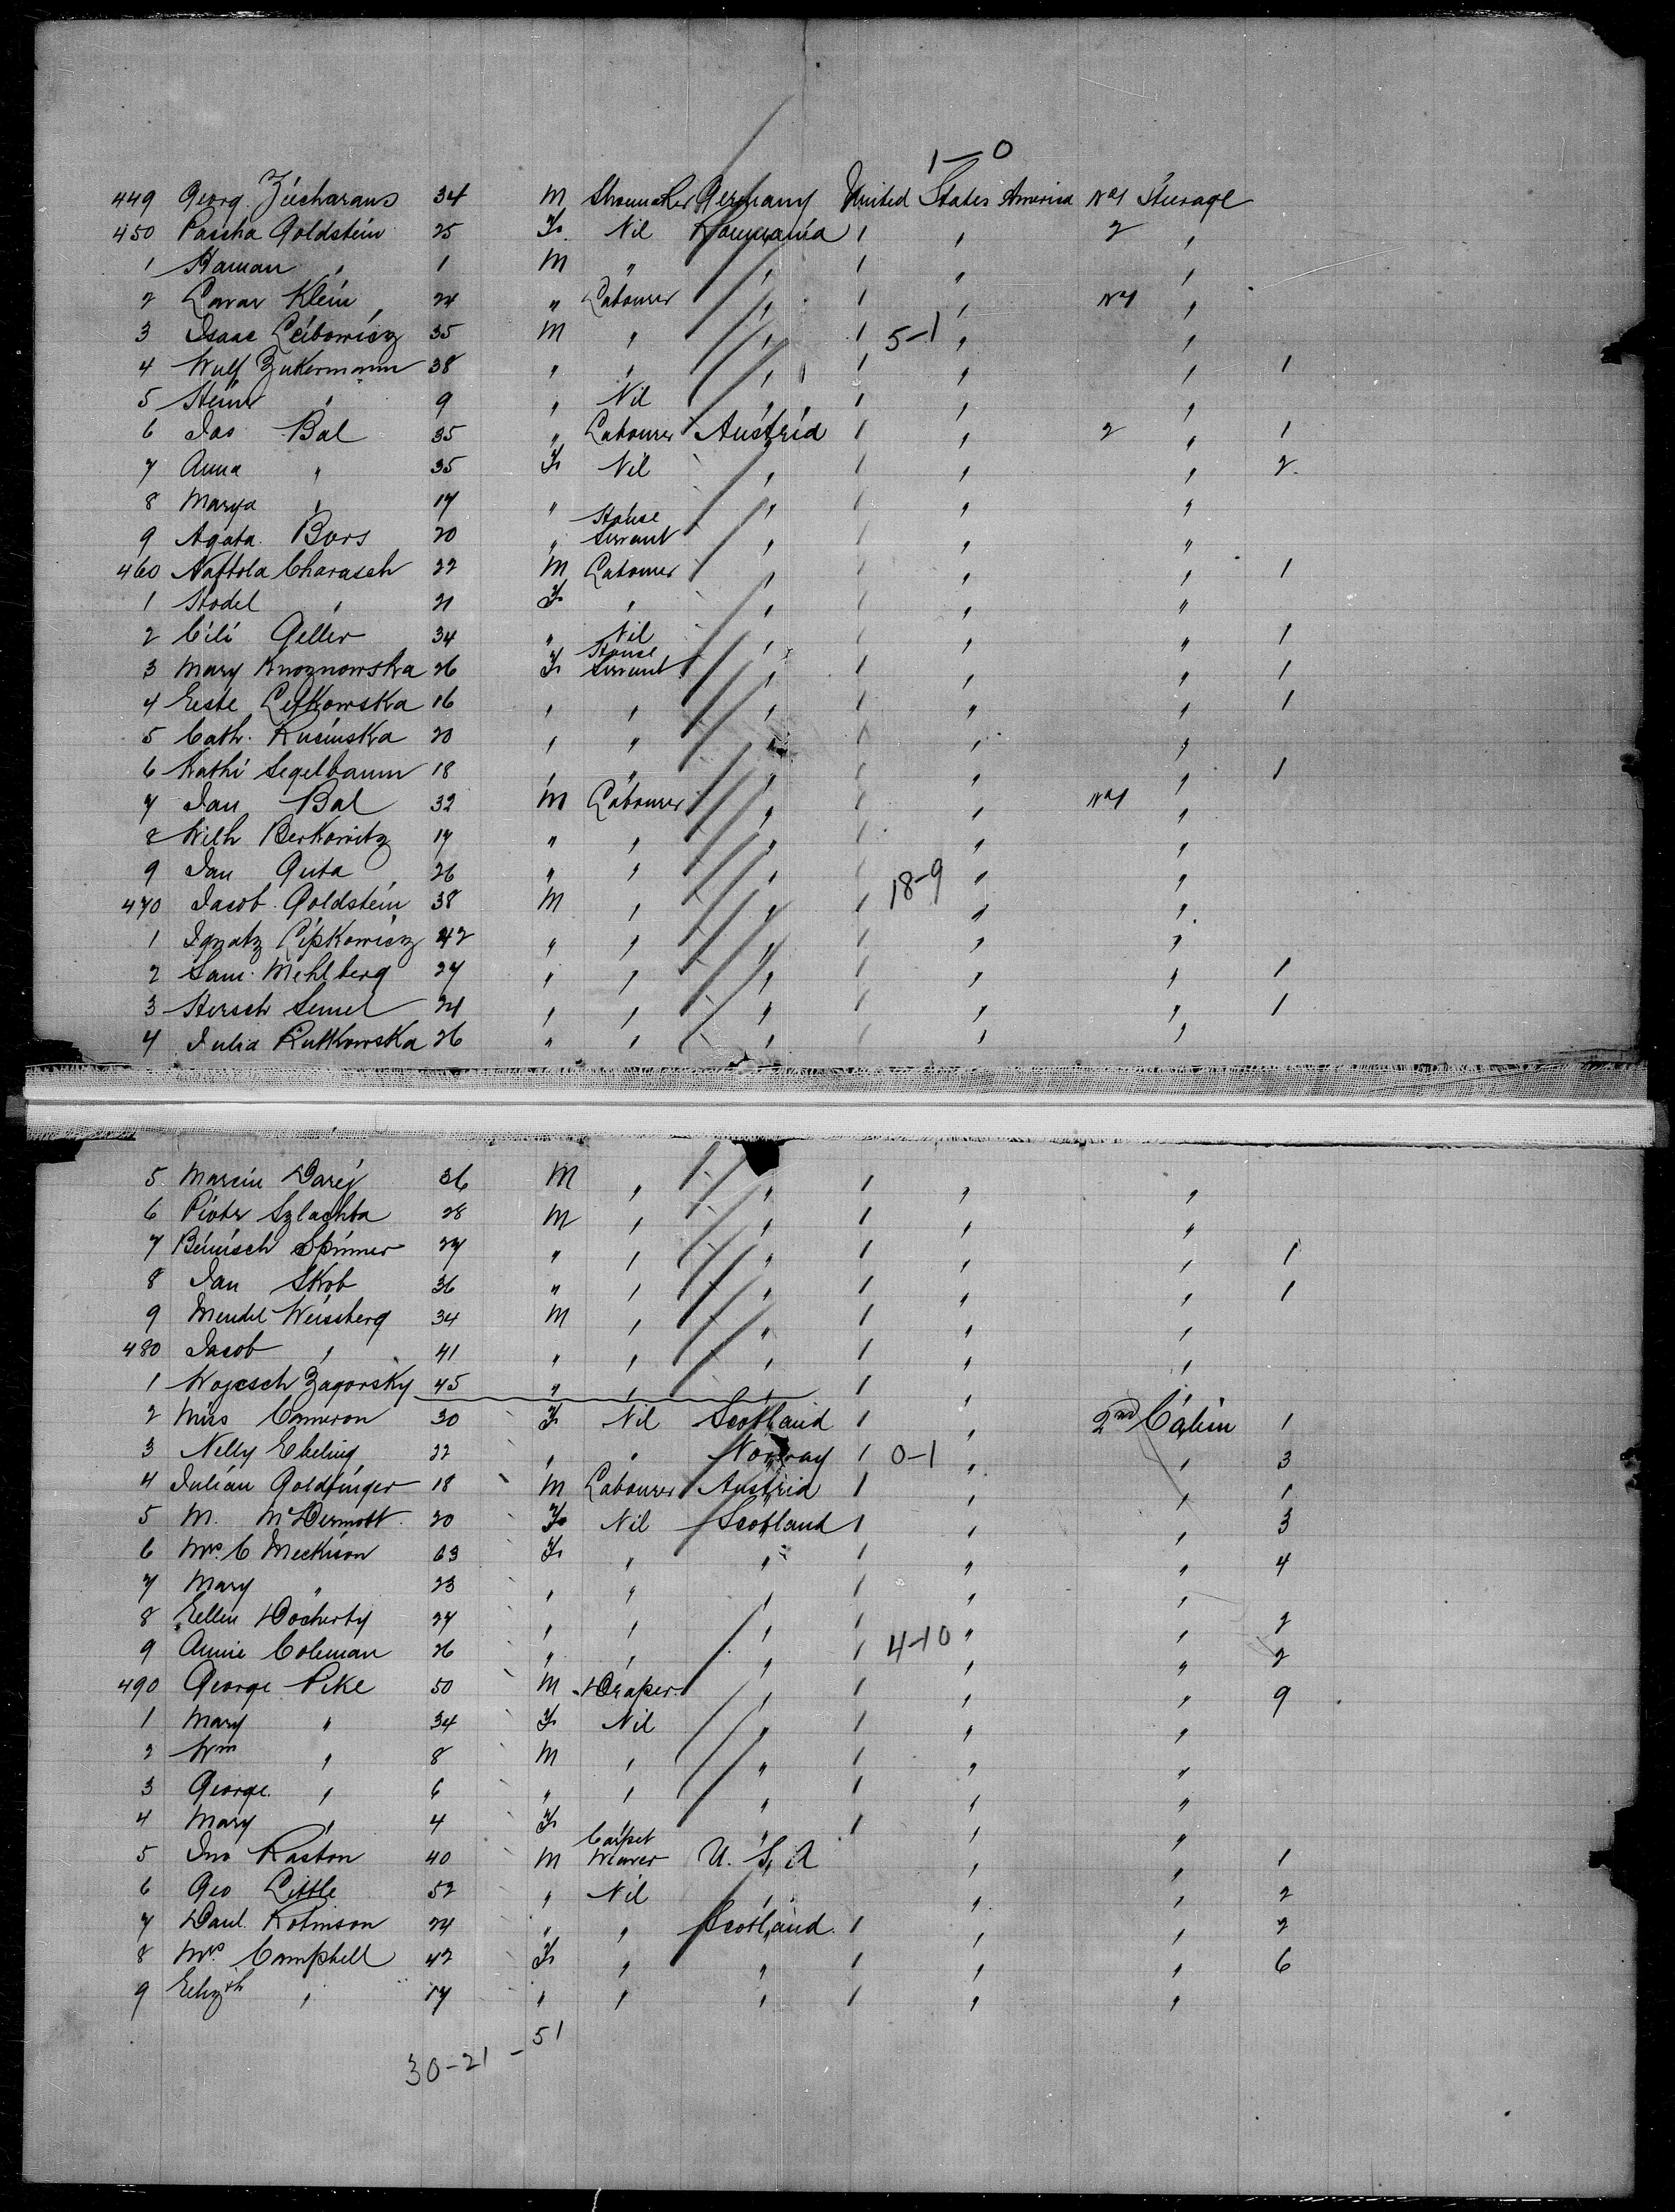 1-0
449 Georg. Zucharaus 34 M Shoemaker Germany United States America No 1 Steerage
450 Pascha Goldstein 25 F. Nil Roumania 1 " 2 "
1 Haman " 1 M " " 1 " "
2 Lavar Klein 24 " Labourer " 1 " No 1 "
3 Isaac Leibowicz 35 M " " 1 5-1 " "
4 Wulf Zukermann 38 " " " 1 " " 1
5 Heinr " 9 " Nil " 1 " "
6 Jas Bal 35 " Labourer Austria 1 " 2 " 1
7 Anna " 35 F. Nil " 1 " " 2
8 Marya " 17 " " 1 " "
9 Agata Bors 20 " House Servant " 1 " "
460 Naftola Charasch 22 M Labourer " 1 " " 1
1 Hodel " 21 F. " " 1 " "
2 Cili Geller 34 " Nil " 1 " " 1
3 Mary Knoznowska 26 F. House Servant " 1 " " 1
4 Eeste Lefkowska 16 " " " 1 " " 1
5 Cath. Rucinska 20 " " " 1 " "
6 Kathi Segelbaum 18 " " " 1 " " 1
7 Jan Bal 32 M Labourer " 1 " No 1 "
8 Wilh Berkowitz 17 " " " 1 " "
9 Jan Guta 26 " " " 1 18-9 " "
470 Jacob Goldstein 38 M " " 1 " "
1 Ignatz Lipkowicz 42 " " " 1 " "
2 Sam. Mehlberg 27 " " " 1 " " 1
3 Hersch Semel 21 " " " 1 " " 1
4 Julia Rutkowska 26 " " " 1 " "
5 Marcin Darej 36 M " " 1 " "
6 Pioter Szlachta 28 M " " 1 " "
7 Beinisch Spinner 27 " " " 1 " " 1
8 Jan Skob 36 " " " 1 " " 1
9 Mendel Weissberg 34 M " " 1 " "
480 Jacob " 41 " " " 1 " "
1 Wojcsch Zagorsky 45 " " " 1 " "
2 Miss Cameron 30 F. Nil Scotland 1 " 2nd Cabin 1
3 Nelly Ebeling 22 " " Norway 1 0-1 " " 3
4 Julian Goldfinger 18 M Labourer Austria 1 " " 1
5 M. McDermott 20 F. Nil Scotland 1 " " 3
6 Mrs. C Meckison 63 F. " " 1 " " 4
7 Mary " 23 " " " 1 " "
8 Ellen Docherty 27 " " " 1 " " 2
9 Annie Coleman 26 " " " 1 4-10 " " 2
490 George Pike 50 M Draper " 1 " " 9
1 Mary " 34 F. Nil " 1 " "
2 Wm " 8 M " " 1 " "
3 George " 6 " " " 1 " "
4 Mary " 4 F. " 1 " "
5 Jno Raston 40 M Carpet Weaver U. S. A " " 1
6 Geo Little 52 " Nil " " " 2
7 Danl. Robinson 24 " " Scotland 1 " " 2
8 Mrs. Campbell 42 F. " " 1 " " 6
9 Elizth " 17 " " " 1 " "
30-21-51